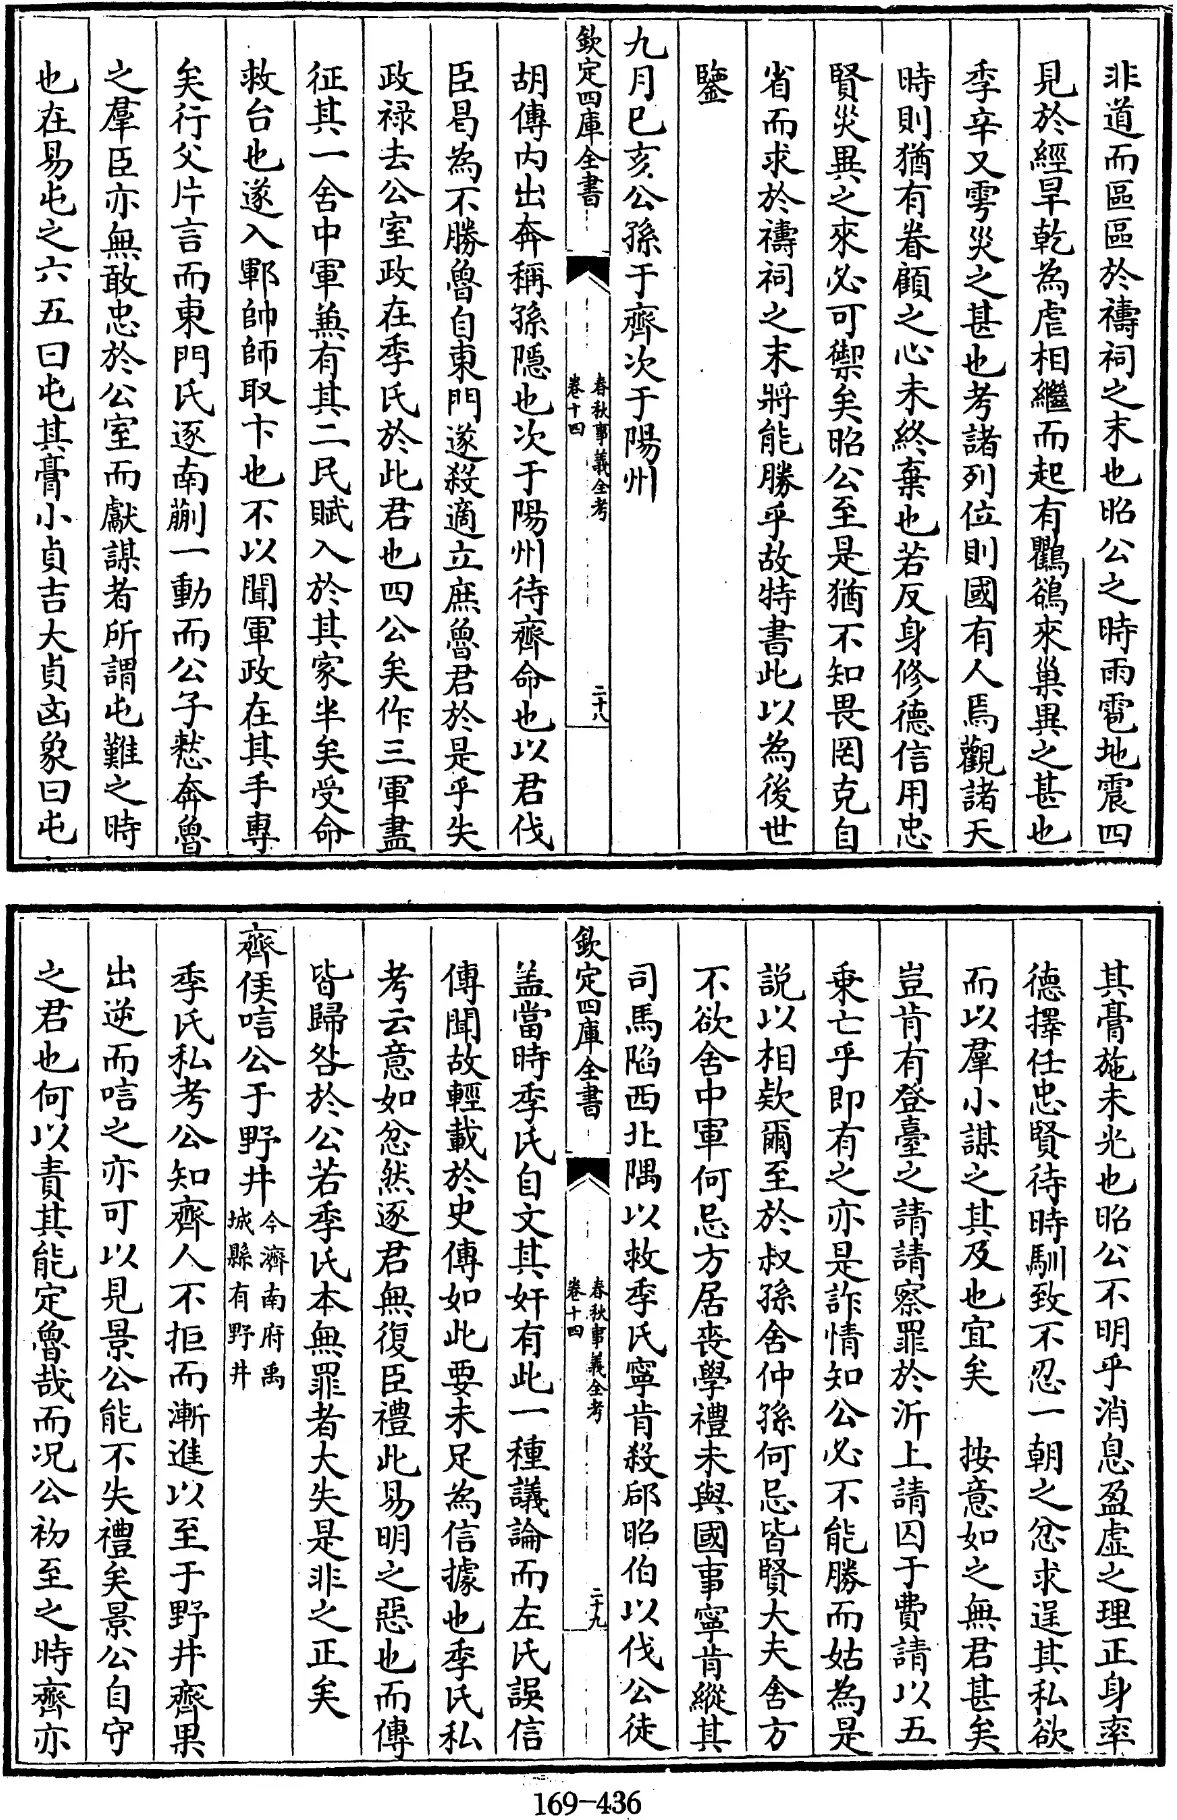 非道而區區於禱祠之末也昭公之時雨雹地震四
見於經旱乾為虐相繼而起有鸜鵒來巢異之甚也
季辛又雩災之甚也考諸列位則國有人焉觀諸天
時則猶有眷顧之心未終棄也若反身修德信用忠
賢災異之來必可禦矣昭公至是猶不知畏罔克自
省而求於禱祠之末將能勝乎故特書此以為後世
鑒
九月已亥公孫于齊次于陽州
欽定四庫全書
春秋事義全考
卷十四
二十八
胡傳内出奔稱孫隱也次于陽州待齊命也以君伐
臣曷為不勝魯自東門遂殺適立庶魯君於是乎失
政禄去公室政在季氏於此君也四公矣作三軍盡
征其一舍中軍兼有其二民賦入於其家半矣受命
救台也遂入鄆帥師取卞也不以聞軍政在其手專
矣行父片言而東門氏逐南蒯一動而公子憖奔魯
之羣臣亦無敢忠於公室而獻謀者所謂屯難之時
也在易屯之六五曰屯其膏小貞吉大貞凶象曰屯
其膏施未光也昭公不明乎消息盈虛之理正身率
德擇任忠賢待時馴致不忍一朝之忿求逞其私欲
而以羣小謀之其及也宜矣　按意如之無君甚矣
豈肯有登臺之請請察罪於沂上請囚于費請以五
乘亡乎即有之亦是詐情知公必不能勝而姑為是
説以相欵爾至於叔孫舍仲孫何忌皆賢大夫舍方
不欲舍中軍何忌方居喪學禮未與國事寧肯縱其
司馬陷西北隅以救季氏寧肯殺郈昭伯以伐公徒
欽定四庫全書
春秋事義全考
卷十四
二十九
盖當時季氏自文其奸有此一種議論而左氏誤信
傳聞故輕載於史傳如此要未足為信據也季氏私
考云意如忿然逐君無復臣禮此易明之惡也而傳
皆歸咎於公若季氏本無罪者大失是非之正矣
齊侯唁公于野井今濟南府禹
城縣有野井
季氏私考公知齊人不拒而漸進以至于野井齊果
出逆而唁之亦可以見景公能不失禮矣景公自守
之君也何以責其能定魯哉而况公初至之時齊亦
169-436